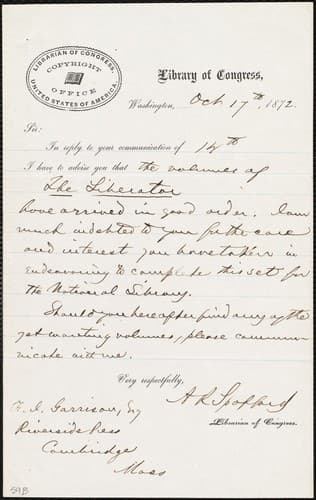 LIBRARIAN OF CONGRESS,
COPYRIGHT
OFFICE
UNITED STATES OF AMERICA.
Library of Congress,
Washington, Oct 17th, 1872.
Sir:
In reply to your communication of 14th
I have to advise you that the volumes of
The Liberator
have arrived in good order. I am
much indebted to you for the care
and interest you have taken in
endeavoring to complete this set for
the National Library.
Should you hereafter find any of the
yet wanting volumes, please commu-
nicate with me.
Very respectfully,
A R Spofford
Librarian of Congress.
Garrison, Esq
Riverside Press
Cambridge
Mass